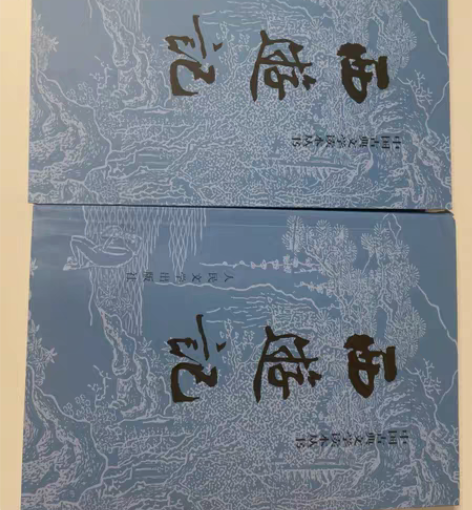 中国古典文学读本丛书
西遊记
中国古典文学读本丛书
西遊记
人民文学出版社